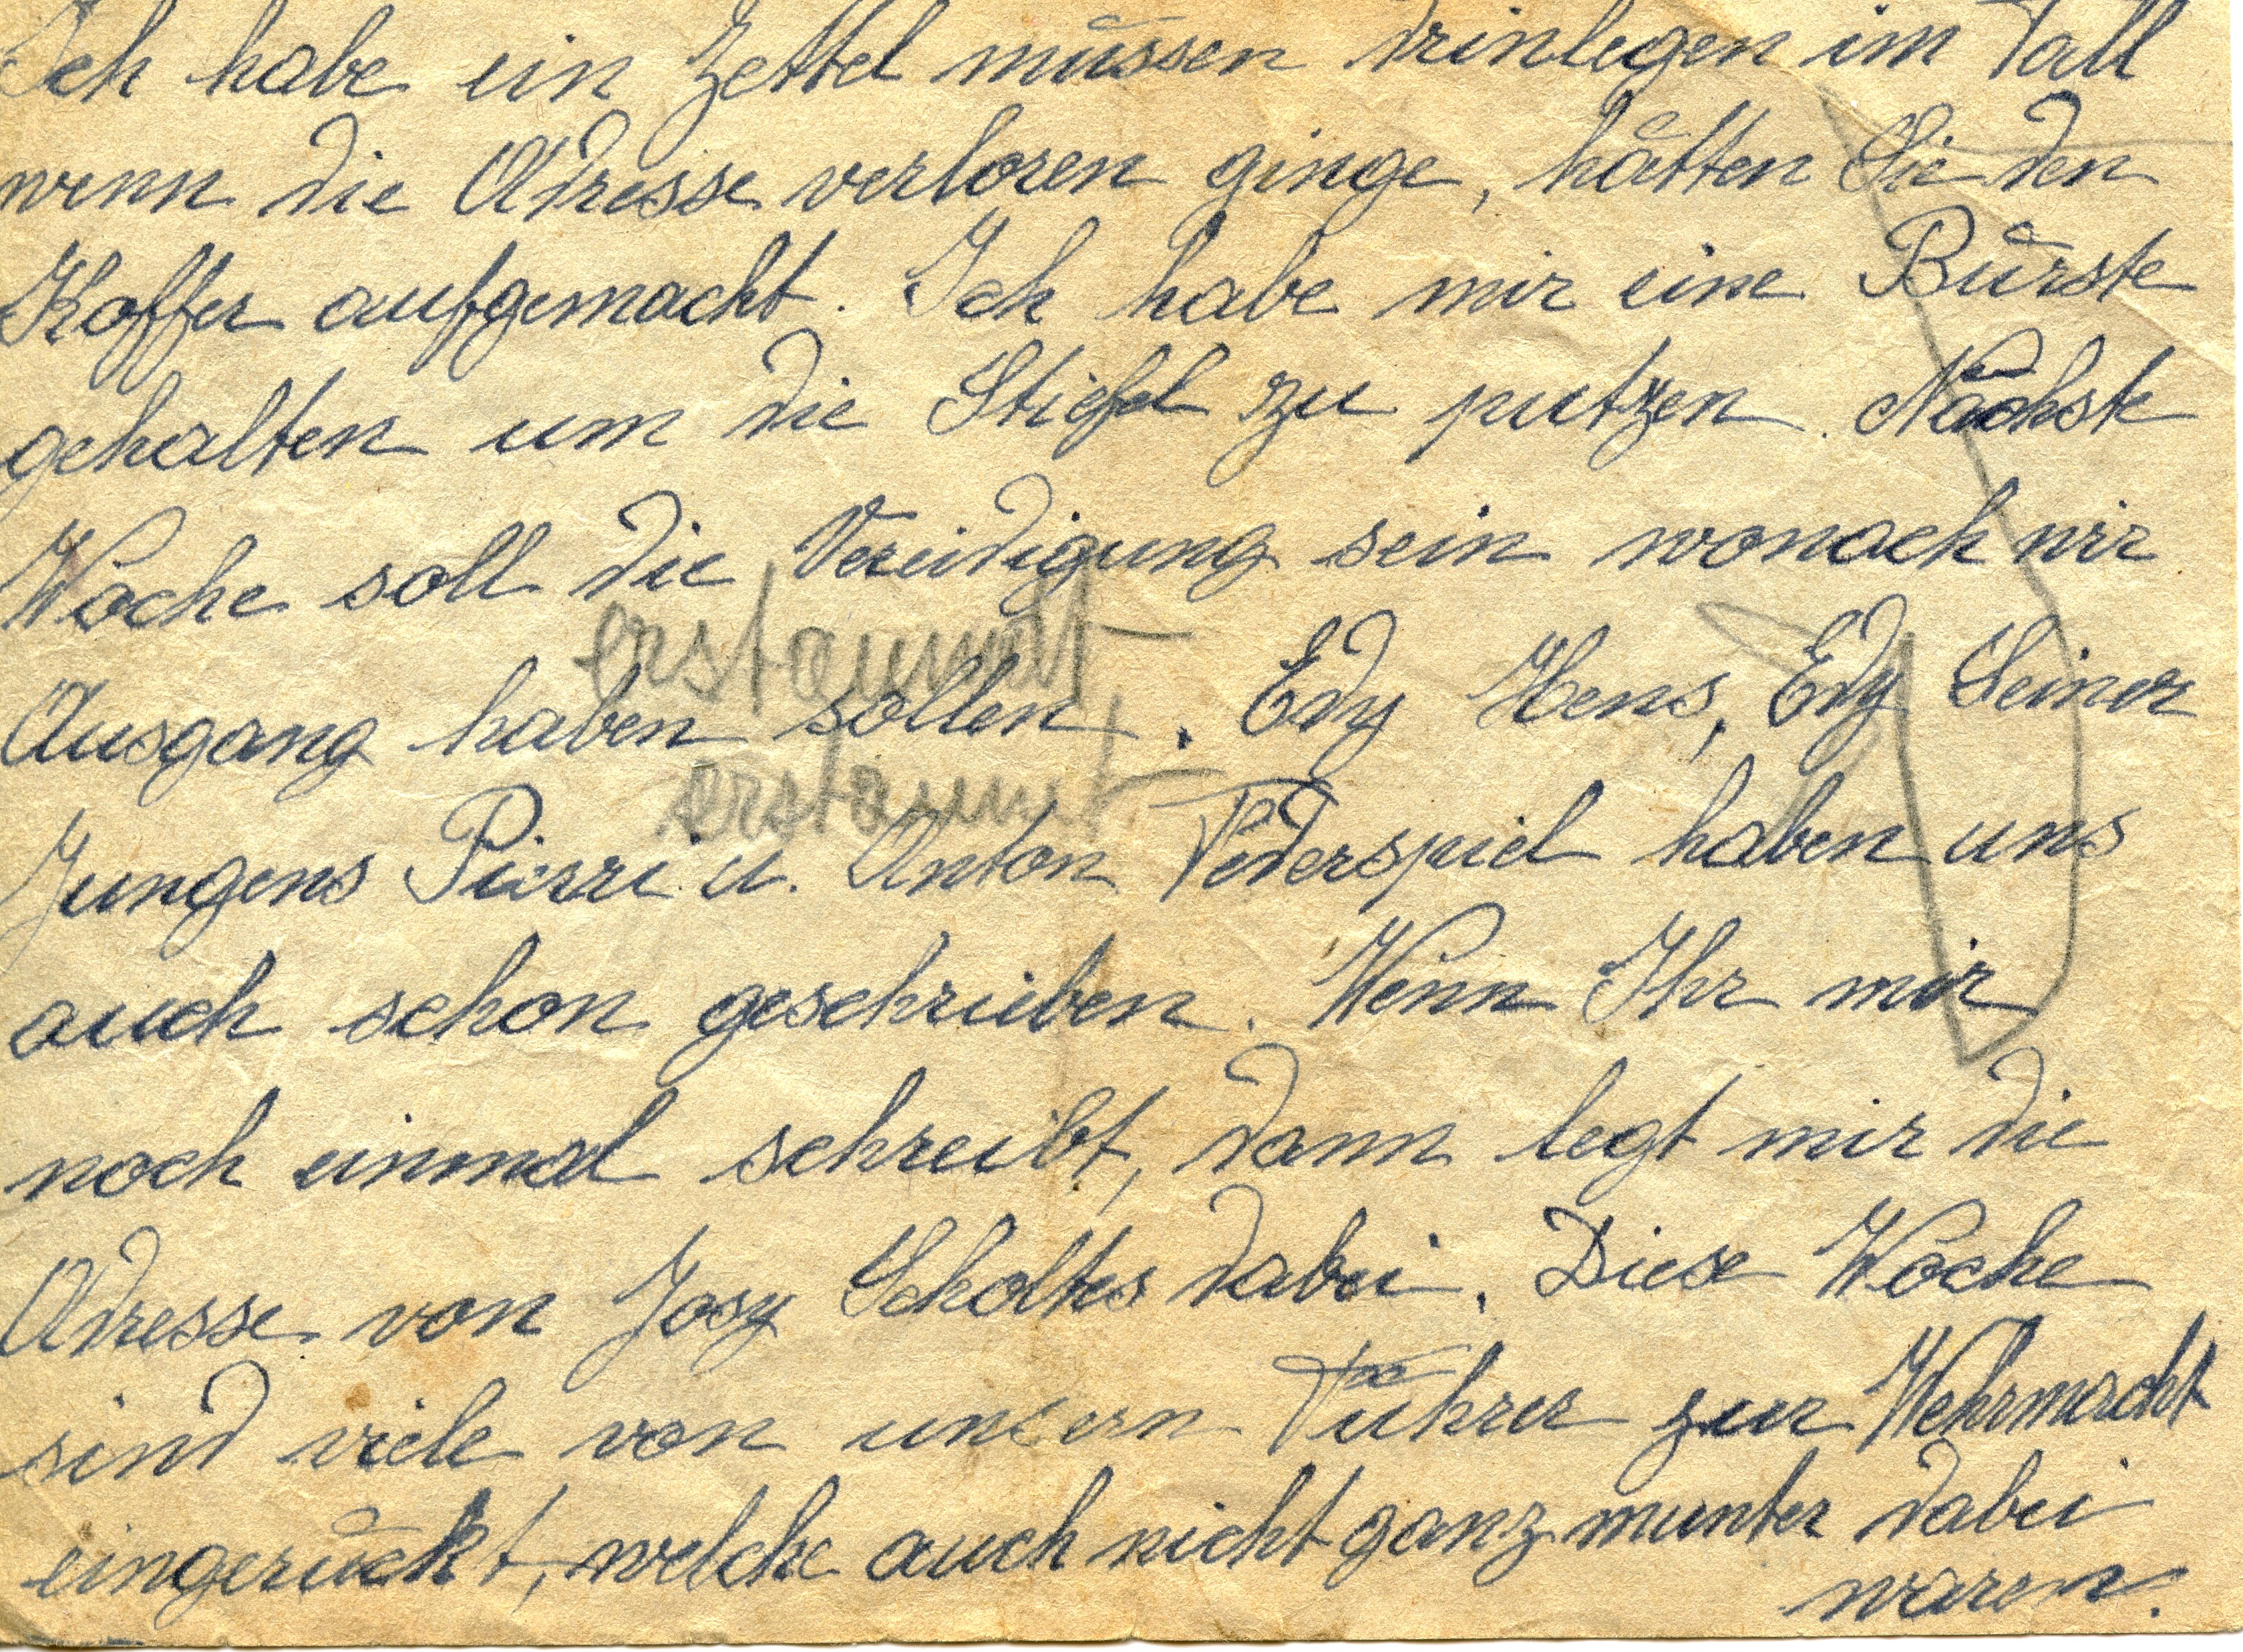 Ich habe ein Zettel müssen drinlegen im Fall
wenn die Adresse verloren ginge, hätten Sie den
Koffer aufgemacht. Ich habe mir eine Bürste
gehalten um die Stiefel zu putzen. Nächste
Woche soll die Vereidigung sein wonach wir
erstaunt
Ausgang haben sollen. Edy Hens, Edy Leiner
erstaunt
Jungens Pierri u. Anton Federspiel haben uns
auch schon geschrieben. Wenn Ihr mir
noch einmal schreibt, dann legt mir die
Adresse von Josy Scholtes dabei. Diese Woche
sind viele von unsern Führer zur Wehrmacht
eingerückt, welche auch nicht ganz munter dabei
waren.